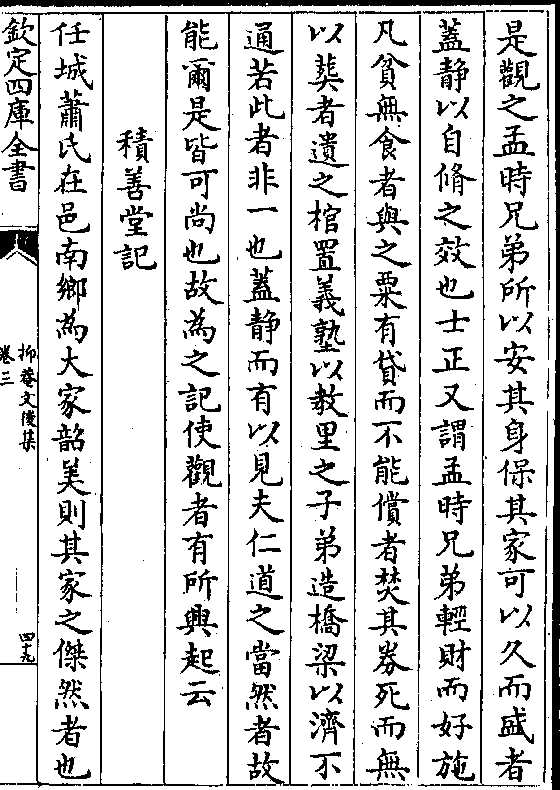 是觀之孟時兄弟所以安其身保其家可以久而盛者
蓋静以自脩之效也士正又謂孟時兄弟輕財而好施
凡貧無食者與之粟有貸而不能償者焚其券死而無
以葬者遺之棺置義塾以教里之子弟造橋梁以濟不
通若此者非一也蓋静而有以見夫仁道之當然者故
能爾是皆可尚也故為之記使觀者有所興起云
積善堂記
任城蕭氏在邑南鄉為大家韶美則其家之傑然者也
欽定四庫全書
抑菴文後集
卷三
四十九